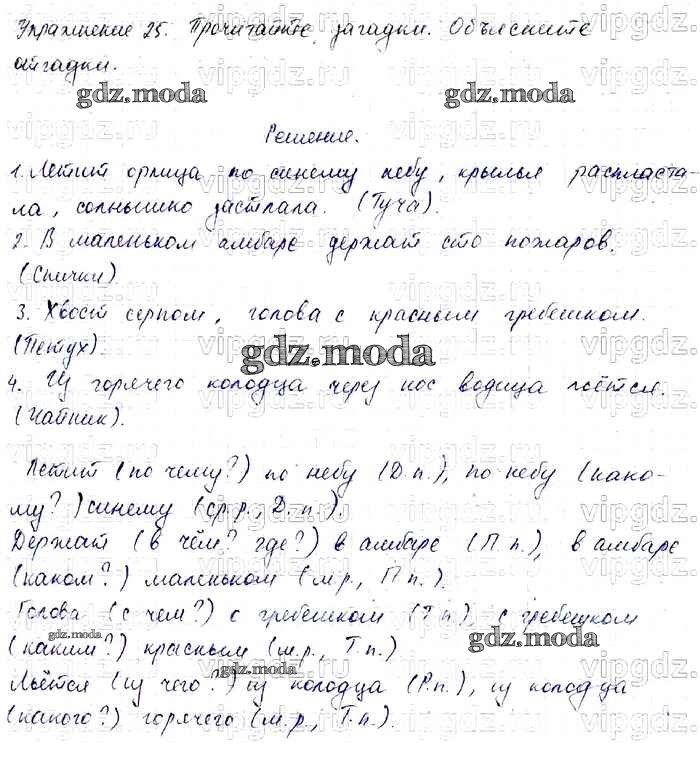 Упражнение 25. Прочитайте загадки. Объясните
отгадки.
gdz.moda
gdz.moda
Решение.
1. Летит орлица по синему небу, крылья распласта-
ла, солнышко застлала. (Туча).
2. В маленьком амбаре держат сто пожаров.
(Спички)
3. Хвост серпом, голова с красным гребешком.
(Петух).
gdz.moda
4. Из горячего колодца через нос водица льётся.
(Чайник).
Летит (по чему?) по небу (Д.п.), по небу (како-
му?) синему (ср.р., Д.п.).
Держат (в чём? где?) в амбаре (П.п.), в амбаре
(каком?) маленьком (м.р., П.п.).
Голова (с чем?) с гребешком (Т.п.), с гребешком
gdz.moda
gdz.moda
(каким?) красным (м.р., Т.п.)
gdz.moda
Льётся (из чего?) из колодца (Р.п.), из колодца
(какого?) горячего (м.р., Т.п.).